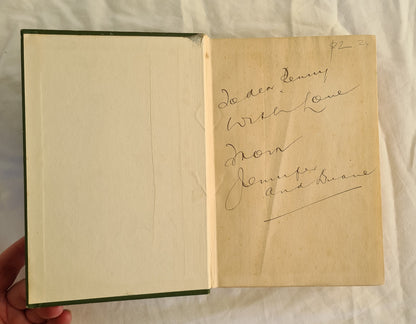 To dear Penny
With Love
From
Jennifer
and Duane